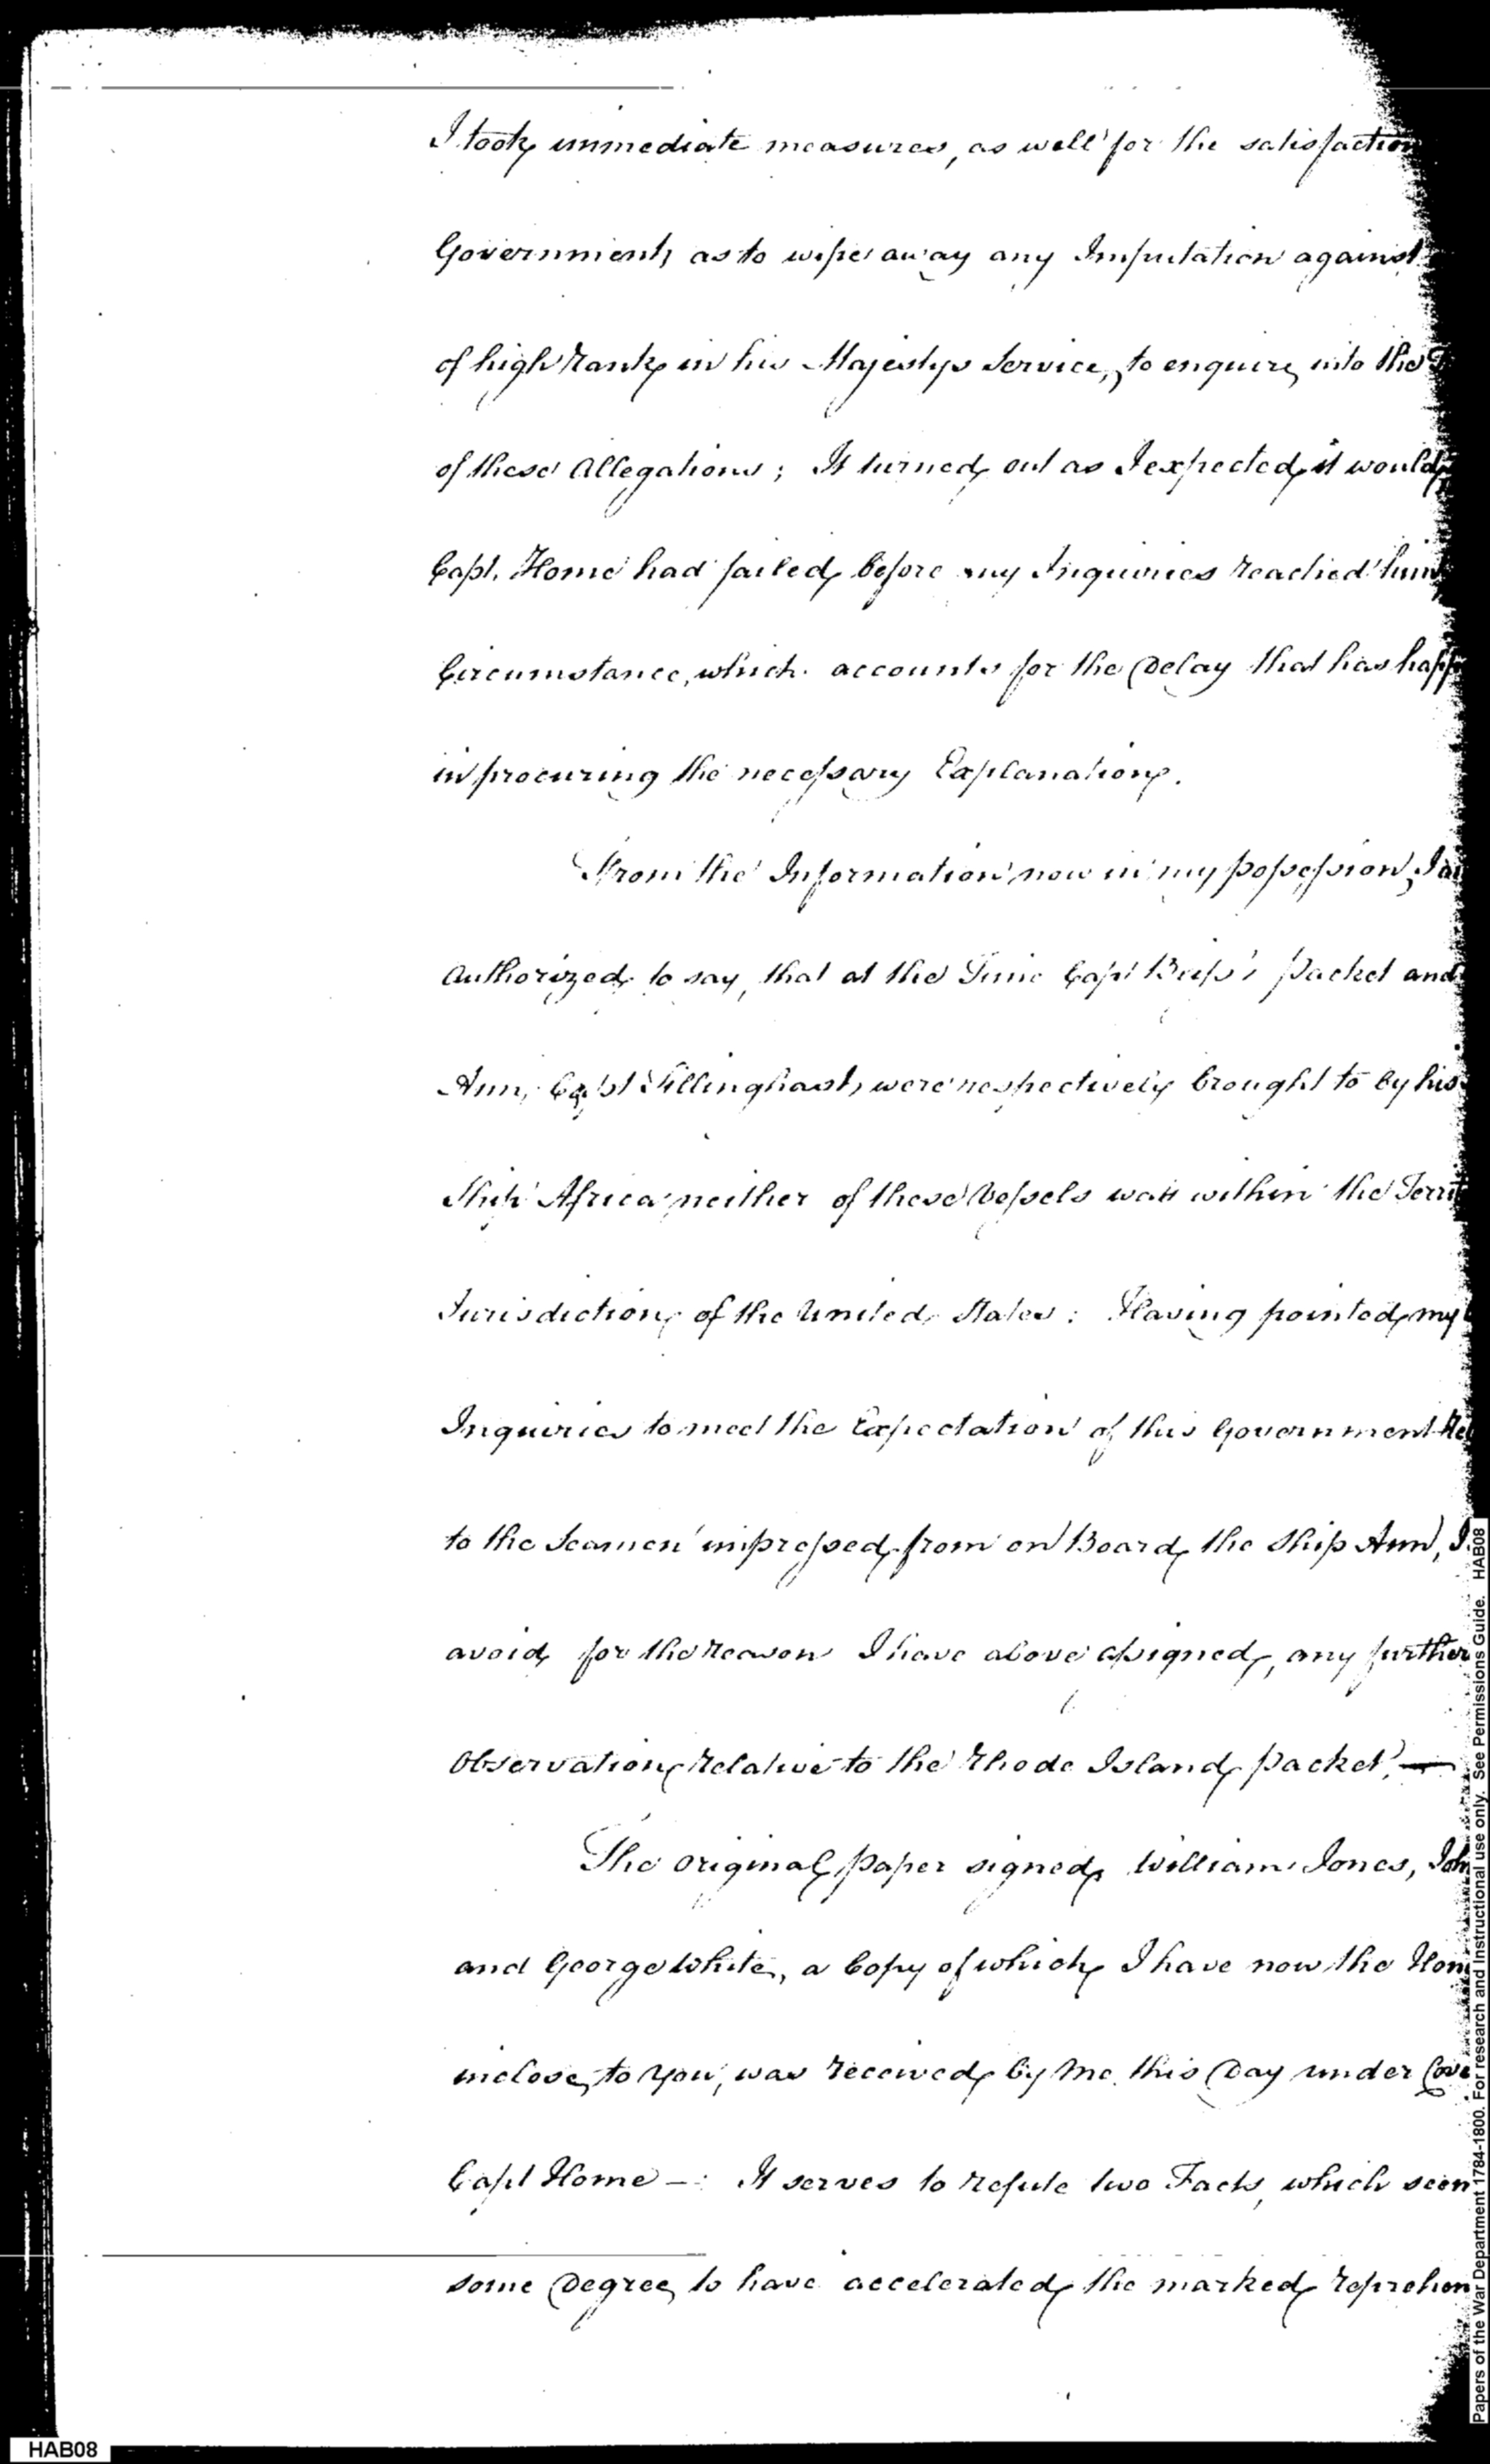 I took immediate measures, as well for the satisfaction
Government, as to wipe away any Imputation against
of high Rank in his Majestys Service, to enquire into the
of these Allegations; It turned out as I expected it would
Capt. Home had sailed before my Inquiries reached him
Circumstance, which accounts for the Delay that has happ
in procuring the necessary Explanation.
From the Information now in my possession, I
authorized to say, that at the Time Capt Packet and
Ann, Capt Tillinghast, were respectively brought to by his
Ship Africa neither of these Vessels was within the Terri
Jurisdiction of the United States: Having pointed my
Inquiries to meet the Expectation of this Government
to the Seamen impressed from on Board the Ship Ann, I
avoid for the reason I have above assigned, any further
Observation relative to the Rhode Island packet, —
The original paper signed William Jones, Joh
and George White, a Copy of which I have now the Hon
inclose to you, was received by me this Day under Cove
Capt Home —: It serves to refute two Facts, which seem
some Degree to have accelerated the marked reprehen
Papers of the War Department 1784-1800. For research and Instructional use only. See Permissions Guide. HAB08
HAB08